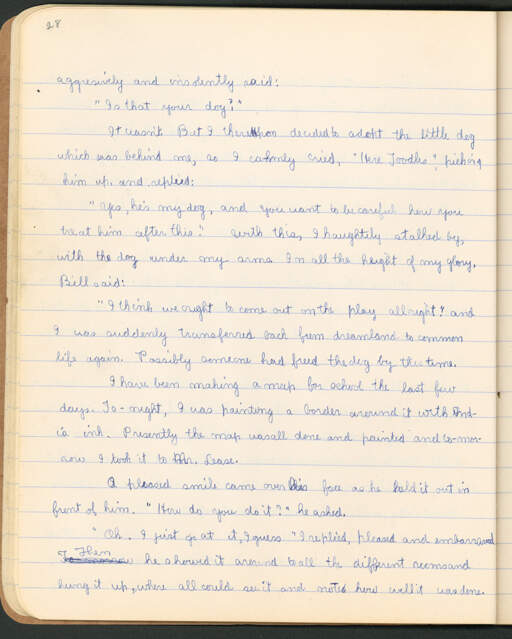 28
aggresively and insolently said:
"Is that your dog?"
It wasn't. But I thereupon decided to adopt the little dog
which was behind me, so I calmly cried, "Here Toodles", picking
him up, and replied:
"Yes, he's my dog, and you want to be careful how you
treat him after this." With this, I haughtily stalked by,
with the dog under my arms in all the height of my glory.
Bill said:
"I think we ought to come out on the play all right!" and
I was suddenly transferred back from dreamland to common
life again. Possibly someone had freed the dog by this time.
I have been making a map for school the last few
days. To-night, I was painting a border around it with Ind-
ia ink. Presently the map was all done and painted and to-mor-
row I took it to Mr. Lease.
A pleased smile came over his face as he held it out in
front of him. "How do you do it?" he asked.
"Oh, I just go at it, I guess" I replied, pleased and embarrassed
Then he showed it around to all the different rooms and
hung it up, where all could see it and noted how well it was done.